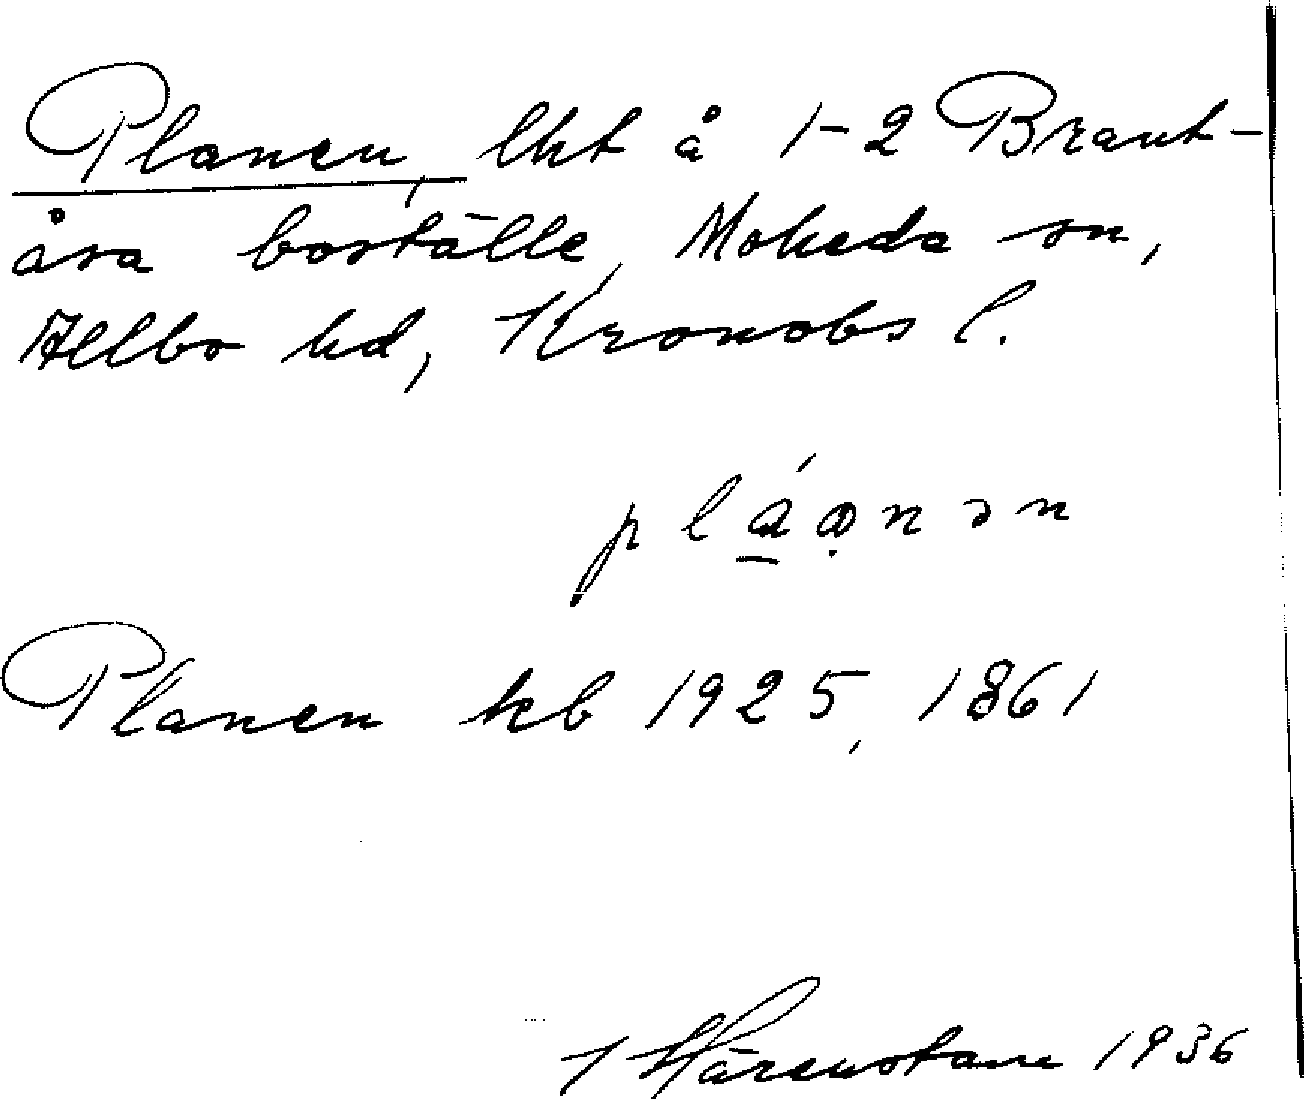 Planen, lht å 1-2 Brant-
åsa boställe, Moheda sn,
Allbo hd, Kronobs l.
pláọnən
Planen kb 1925, 1861
1936